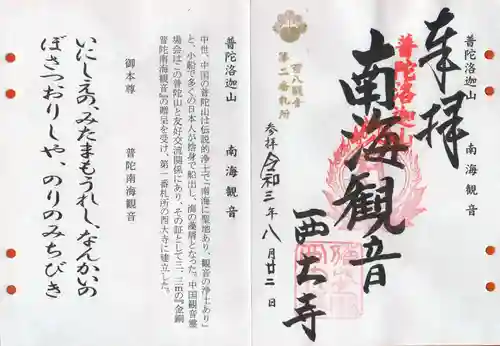 奉拝
普陀洛迦山 南海観音
普陀洛迦山
南海観音
西大寺
百八観音
第二番札所
参拝 令和三年八月廿二日
普陀洛迦山 南海観音
中世、中国の普陀山は伝説的浄土で「南海に聖地あり、観音の浄土あり」
と、小船で多くの日本人が捨身で船出し、海の藻屑となった。中国観音霊
場会はこの普陀山と友好交流関係にあり、その証として三、三mの『金銅
普陀南海観音』の贈呈を受け、第一番札所の西大寺に建立した。
御本尊 普陀南海観音
いにしえの、みたまもうれし、なんかいの
ぼさつおりしや、のりのみちびき